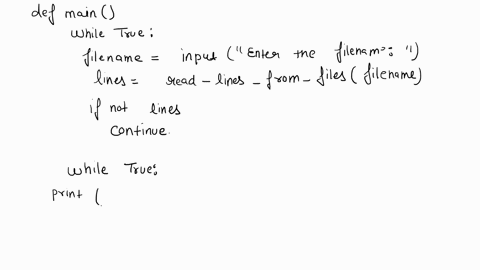 def main()
while True:
filename = input ("Enter the filename: ")
lines = read-lines-from-files( filename)
if not lines
Continue.
while True:
print (